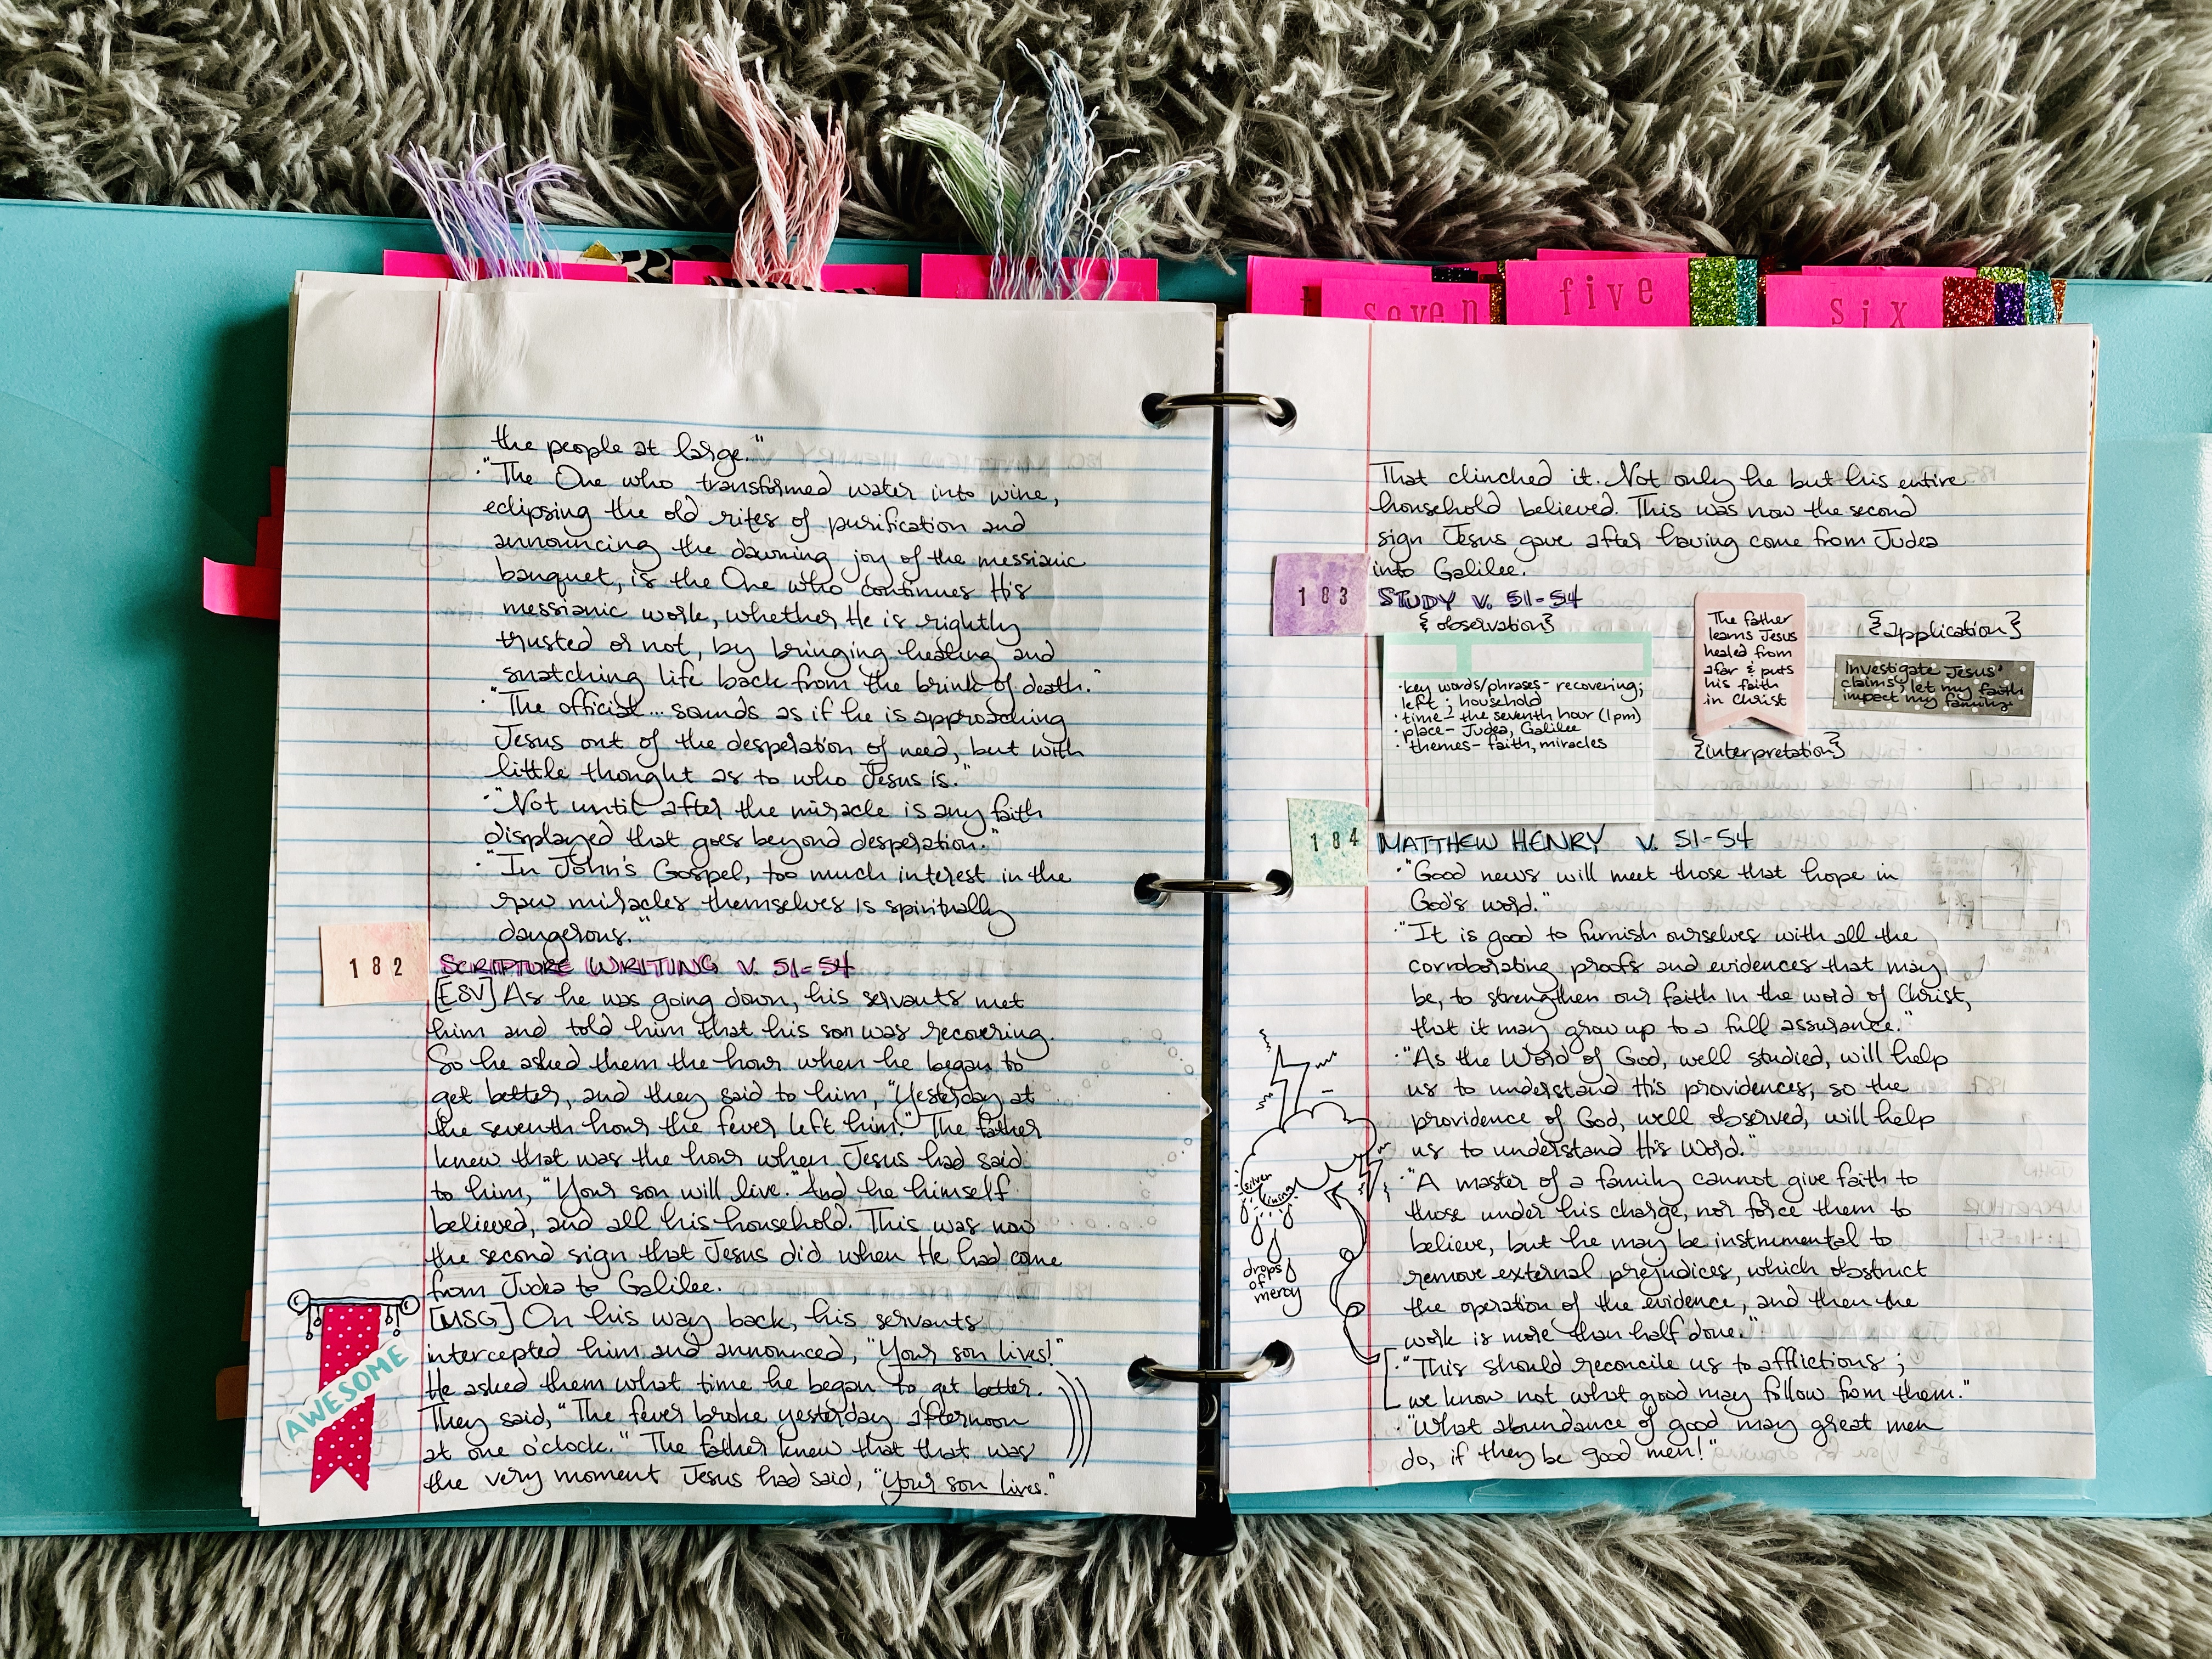 seven
five
six
the people at large."
· "The One who transformed water into wine,
eclipsing the old rites of purification and
announcing the dawning joy of the messianic
banquet, is the One who continues His
messianic work, whether He is rightly
trusted or not, by bringing healing and
snatching life back from the brink of death."
· "The official... sounds as if he is approaching
Jesus out of the desperation of need, but with
little thought as to who Jesus is."
· "Not until after the miracle is any faith
displayed that goes beyond desperation."
· "In John's Gospel, too much interest in the
raw miracles themselves is spiritually
dangerous."
182 SCRIPTURE WRITING V. 51-54
[ESV] As he was going down, his servants met
him and told him that his son was recovering.
So he asked them the hour when he began to
get better, and they said to him, "Yesterday at
the seventh hour the fever left him." The father
knew that was the hour when Jesus had said
to him, "Your son will live." And he himself
believed, and all his household. This was now
the second sign that Jesus did when He had come
from Judea to Galilee.
[MSG] On his way back, his servants
intercepted him and announced, "Your son lives!"
He asked them what time he began to get better.
They said, "The fever broke yesterday afternoon
at one o'clock." The father knew that that was
the very moment Jesus had said, "Your son lives."
AWESOME
That clinched it. Not only he but his entire
household believed. This was now the second
sign Jesus gave after having come from Judea
into Galilee.
183 STUDY V. 51-54
{observation}
· key words/phrases- recovering;
left; household
· time- the seventh hour (1pm)
· place- Judea, Galilee
· themes- faith, miracles
The father
learns Jesus
healed from
afar & puts
his faith
in Christ
{interpretation}
{application}
Investigate Jesus'
claims; let my faith
impact my family.
184 MATTHEW HENRY V. 51-54
· "Good news will meet those that hope in
God's word."
· "It is good to furnish ourselves with all the
corroborating proofs and evidences that may
be, to strengthen our faith in the word of Christ,
that it may grow up to a full assurance."
· "As the Word of God, well studied, will help
us to understand His providences, so the
providence of God, well observed, will help
us to understand His Word."
· "A master of a family cannot give faith to
those under his charge, nor force them to
believe, but he may be instrumental to
remove external prejudices, which obstruct
the operation of the evidence, and then the
work is more than half done."
· "This should reconcile us to afflictions;
we know not what good may follow from them."
· "What abundance of good may great men
do, if they be good men!"
silver
lining
drops
of
mercy